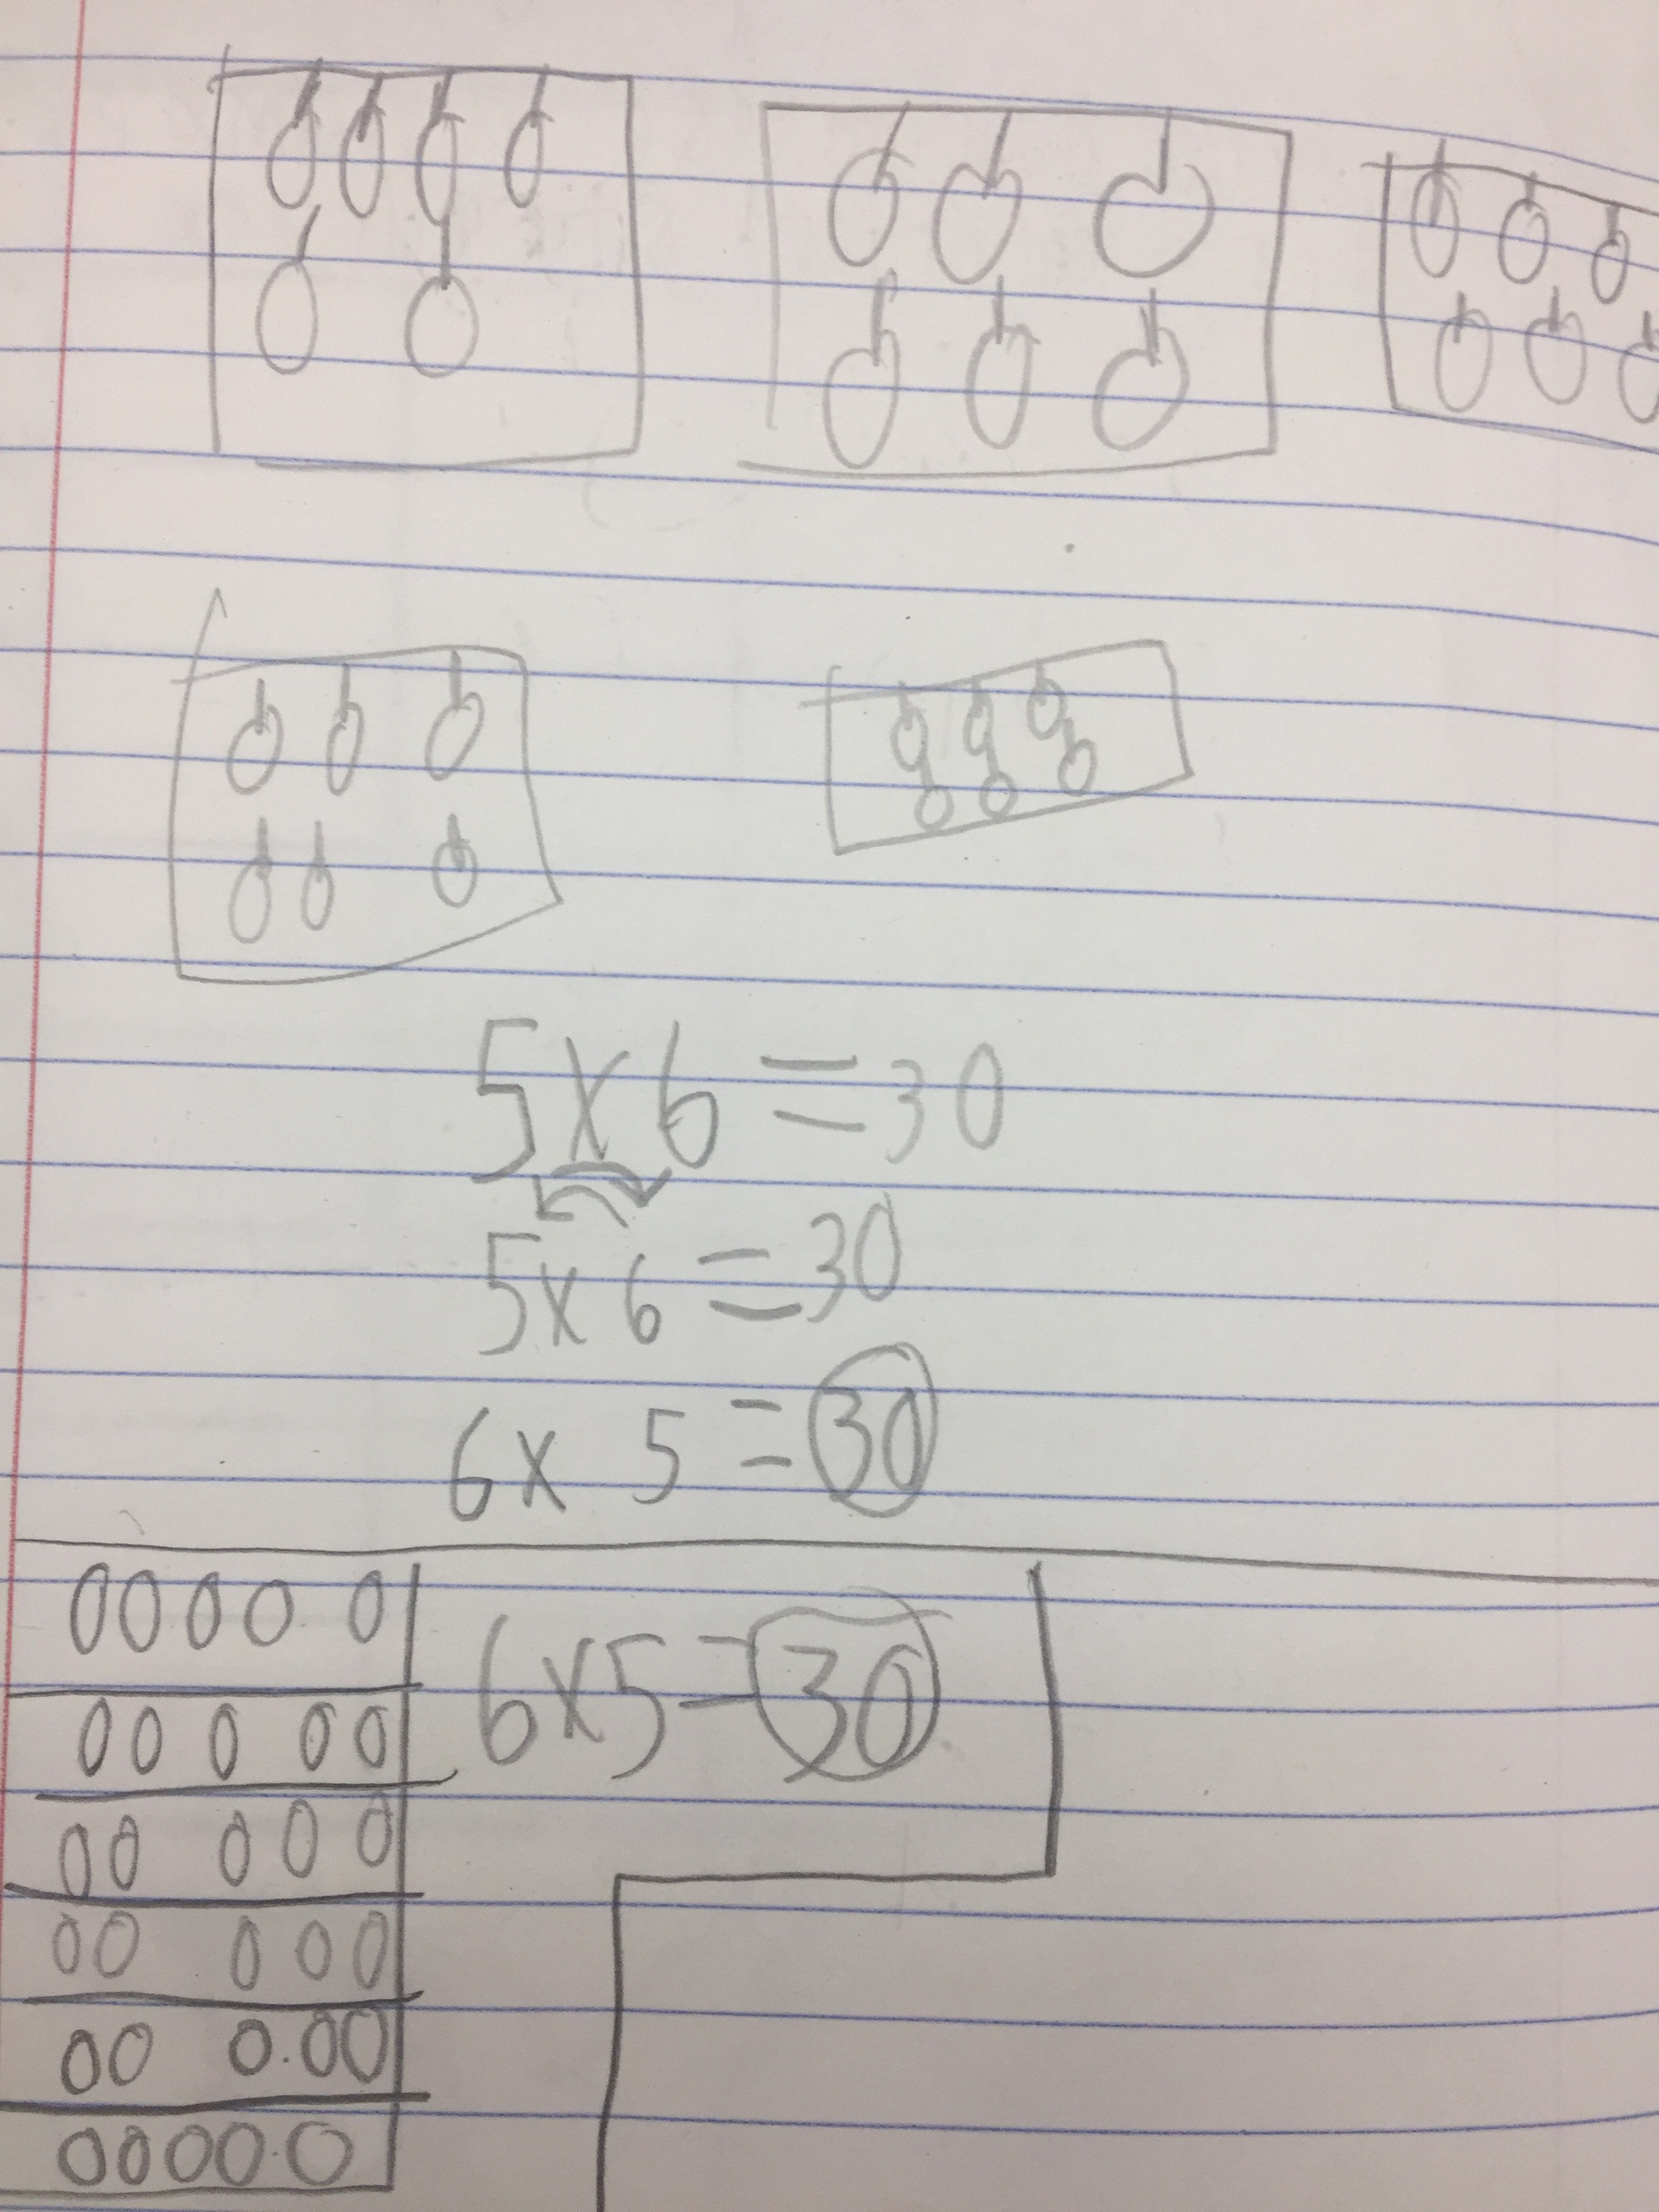 5 x 6 = 30
5 x 6 = 30
6 x 5 = 30
6 x 5 = 30